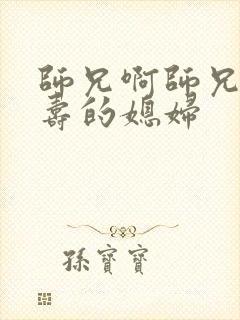 師兄啊師兄
壽的媳婦
孫寶寶